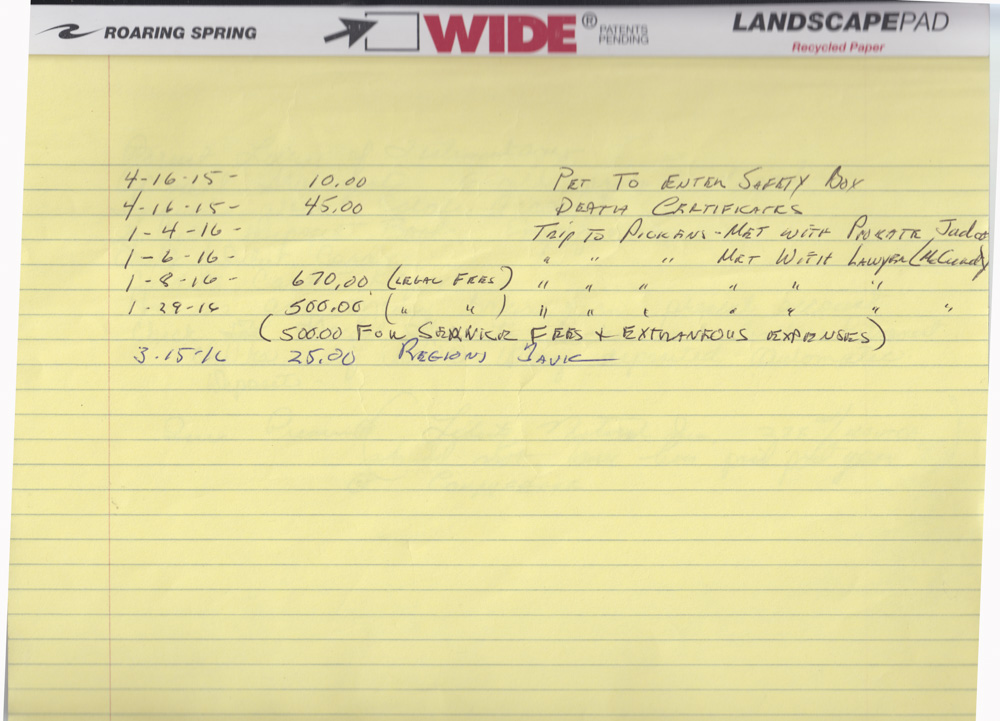 ROARING SPRING WIDE® PATENTS PENDING LANDSCAPEPAD
Recycled Paper
4-16-15- 10.00 PET TO ENTER SAFETY BOX
4-16-15- 45.00 DEATH CERTIFICATES
1-4-16- TRIP TO PICKENS-MET WITH PROBATE JUDGE
1-6-16- " " " MET WITH LAWYER (McCurdy)
1-8-16- 670.00 (LEGAL FEES) " " " " " "
1-29-16 500.00 ( " " ) " " " " " " "
(500.00 FOR SERVICE FEES + EXTRANEOUS EXPENSES)
3.15-16 25.00 REGIONS BANK